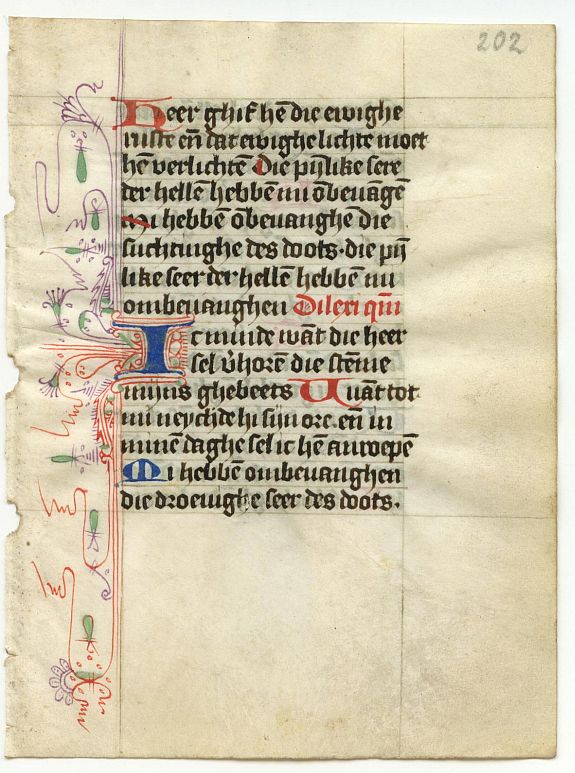 202
Heer ghif hē die ewighe
ruste eñ dat ewighe lichte moet
hē verlichtē Die pijnlike sere
der hellē hebbē mi ōbeuāgē
Mi hebbē ōbeuanghe die
suchtinghe des doots. die pijn
like seer der hellē hebbē mi
ombeuanghen Dilexi qm̄
Ic minde wāt die heer
sel v̄horē die stēme
mijns ghebeets Wāt tot
mi neychde hi sijn ore. eñ in
minē daghe sel ic hē anroepē
Mi hebbē ombeuanghen
die droeuighe seer des doots.